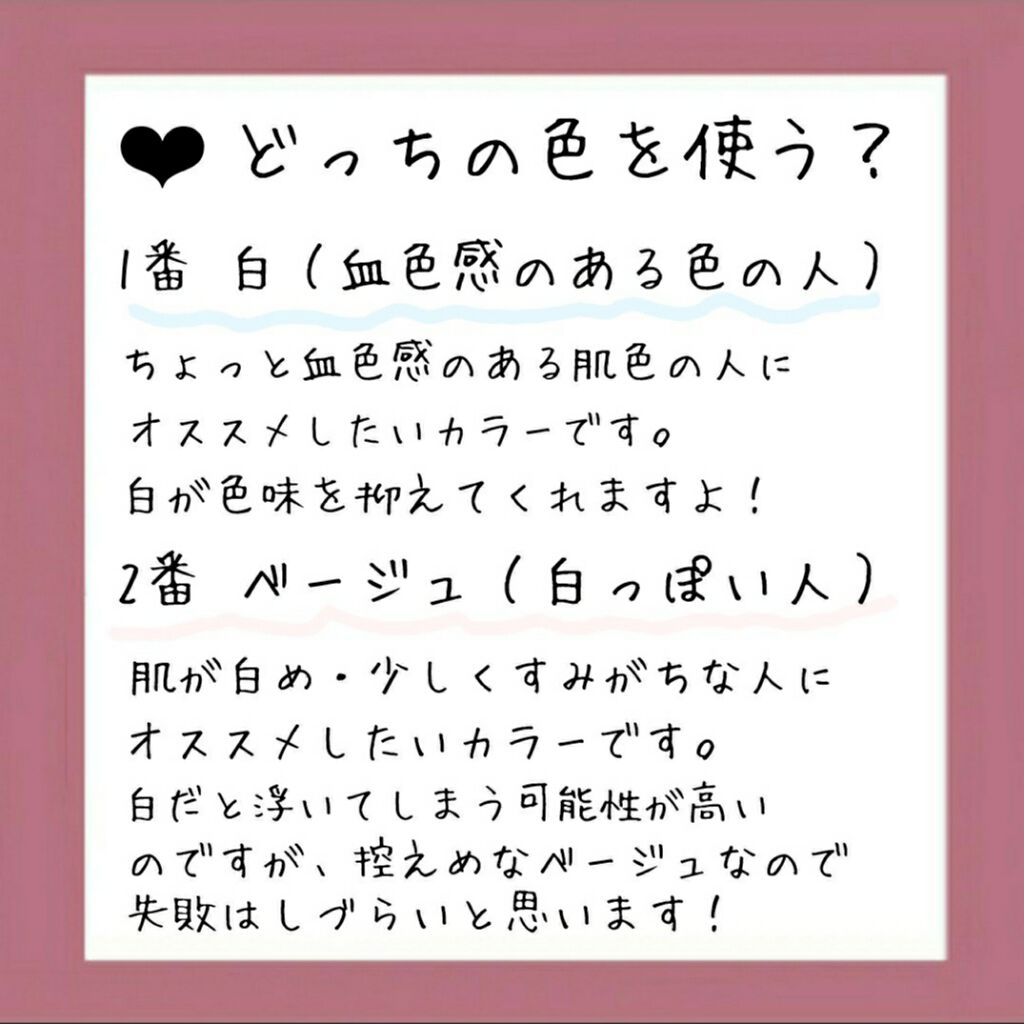 ♥ どっちの色を使う?
1番 白(血色感のある色の人)
ちょっと血色感のある肌色の人に
オススメしたいカラーです。
白が色味を抑えてくれますよ!
2番 ベージュ(白っぽい人)
肌が白め・少しくすみがちな人に
オススメしたいカラーです。
白だと浮いてしまう可能性が高い
のですが、控えめなベージュなので
失敗はしづらいと思います!